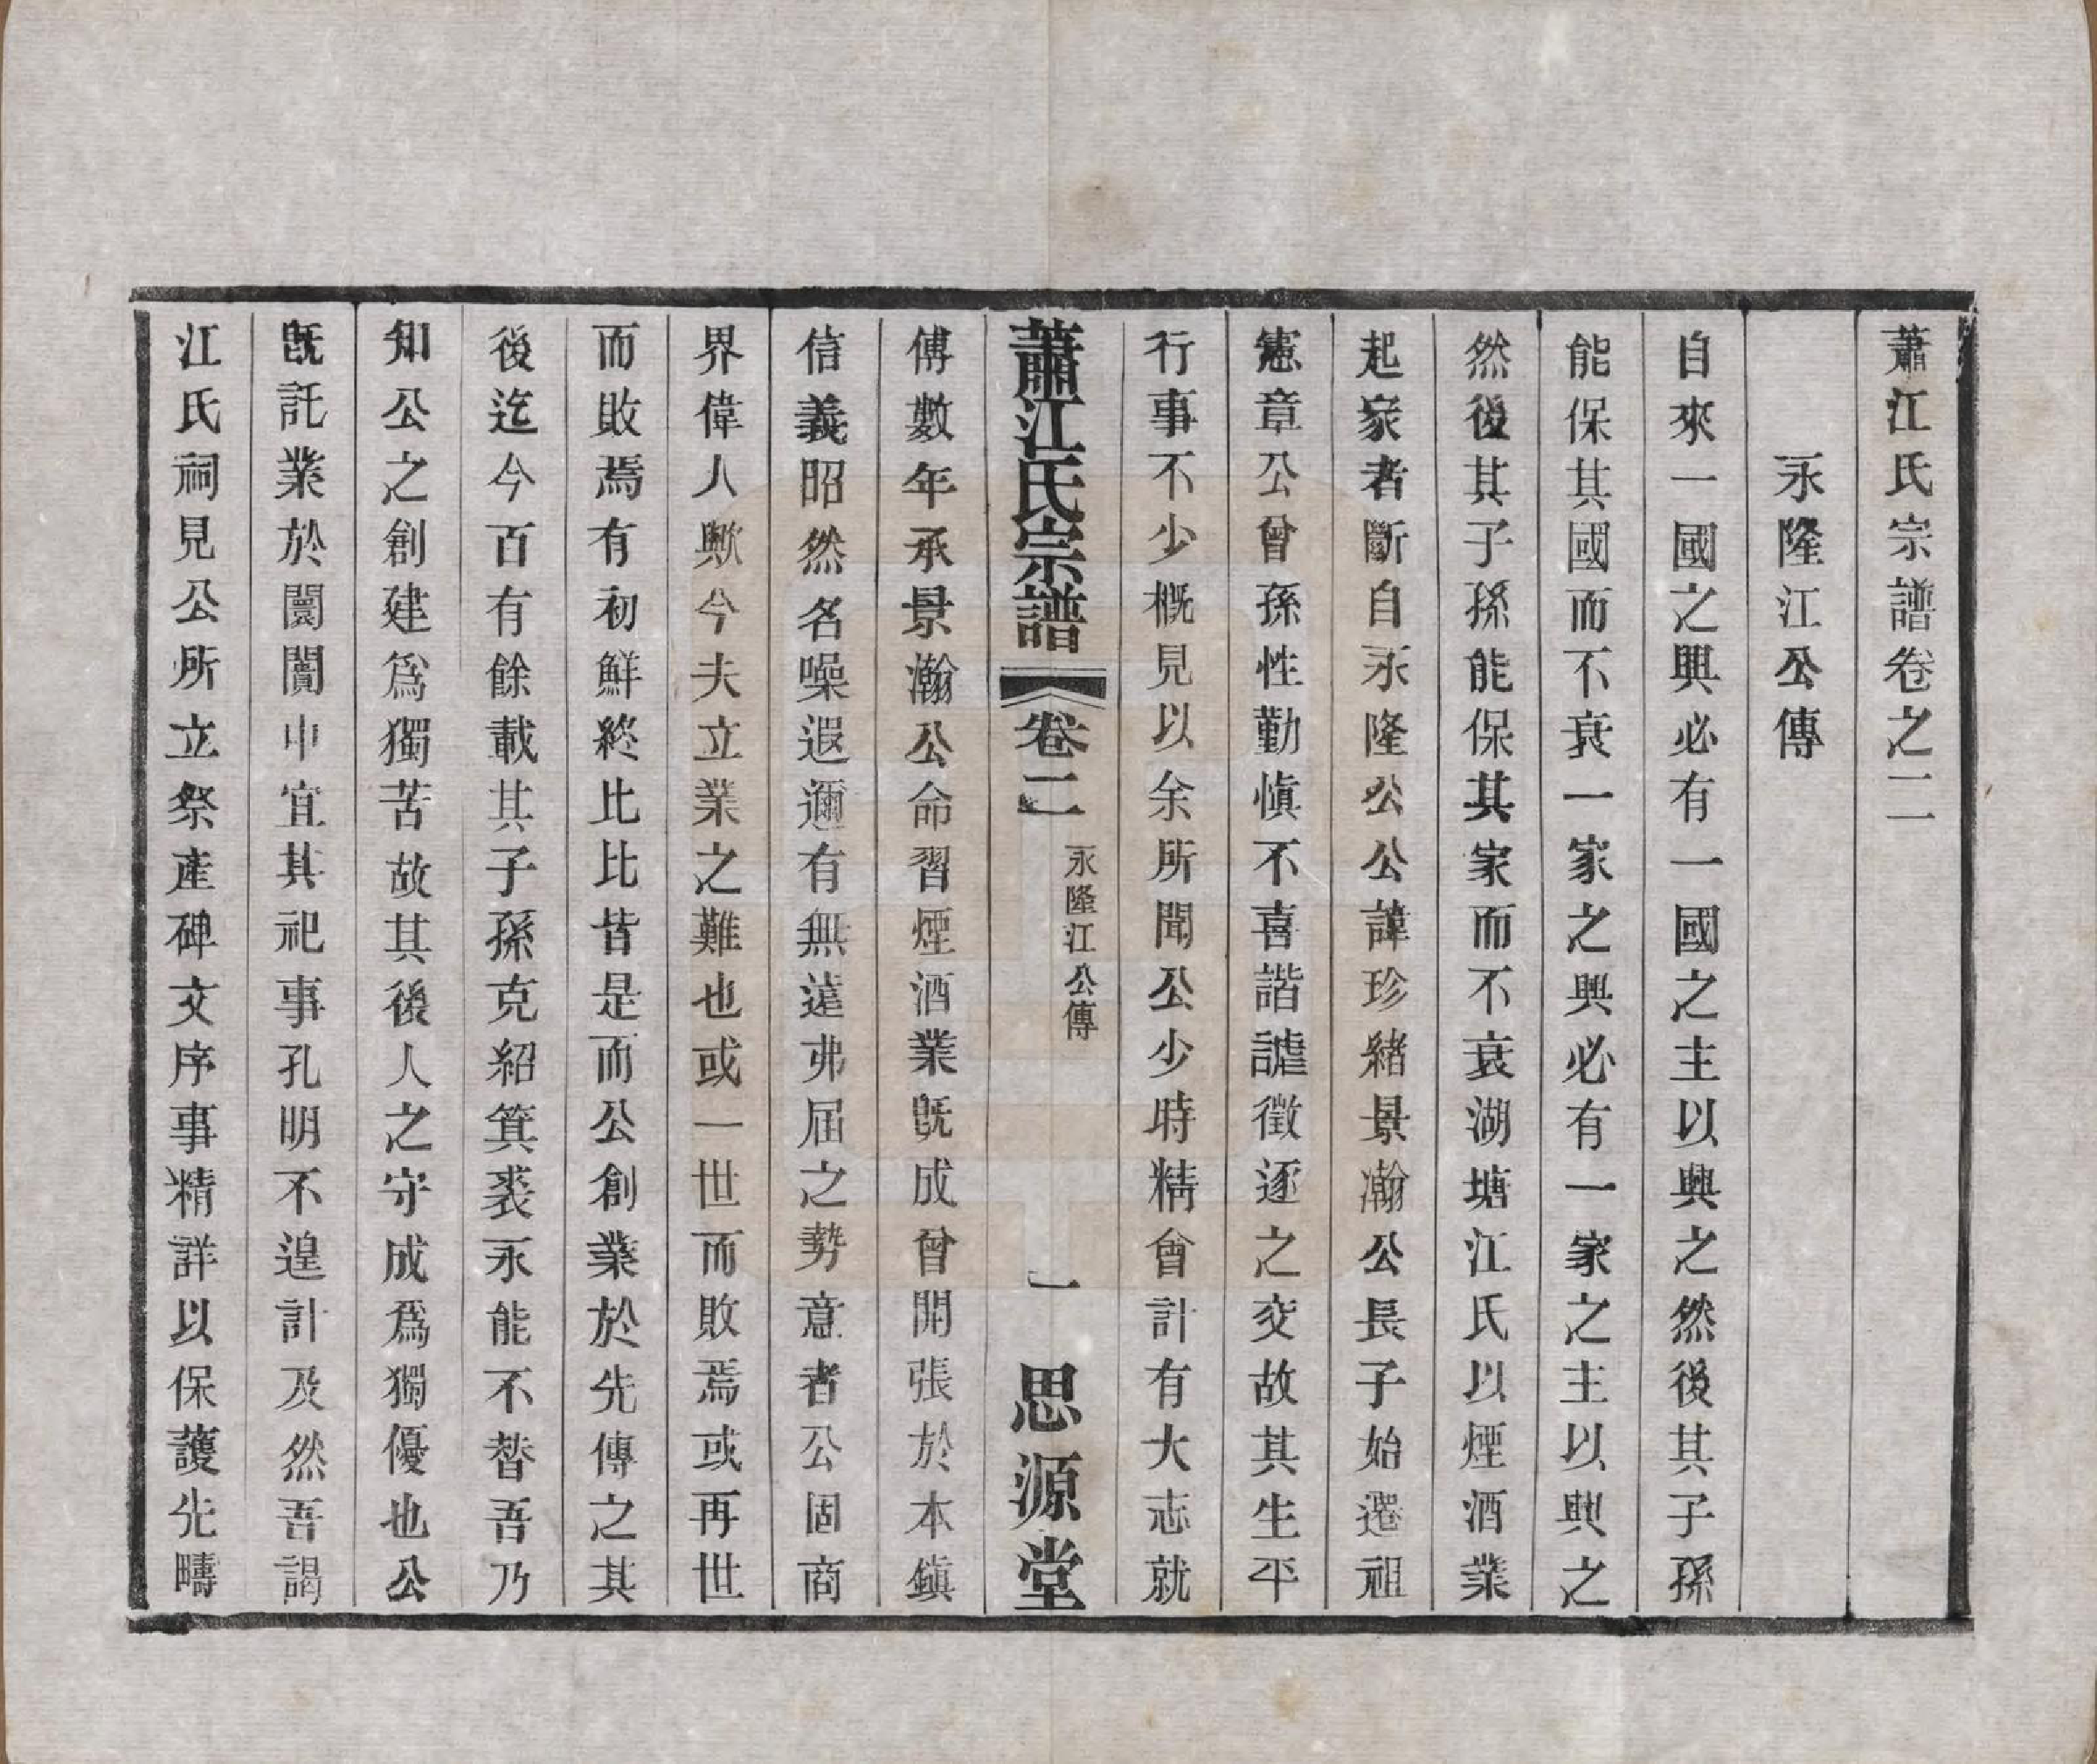 蕭江氏宗譜卷之二
永隆江公傳
自來一國之興必有一國之主以興之然後其子孫
能保其國而不衰一家之興必有一家之主以興之
然後其子孫能保其家而不衰湖塘江氏以煙酒業
起家者斷自永隆公公諱珍緒景瀚公長子始遷祖
憲章公曾孫性勤愼不喜諧謔徵逐之交故其生平
行事不少槪見以余所聞公少時精會計有大志就
蕭江氏宗譜 卷二 永隆江公傳 一 思源堂
傅數年承景瀚公命習煙酒業旣成曾開張於本鎭
信義昭然名噪遐邇有無遠弗屆之勢意者公固商
界偉人歟今夫立業之難也或一世而敗焉或再世
而敗焉有初鮮終比比皆是而公創業於先傳之其
後迄今百有餘載其子孫克紹箕裘永能不替吾乃
知公之創建爲獨苦故其後人之守成爲獨優也公
旣託業於闤闠中宜其祀事孔明不遑計及然吾謁
江氏祠見公所立祭產碑文序事精詳以保護先疇